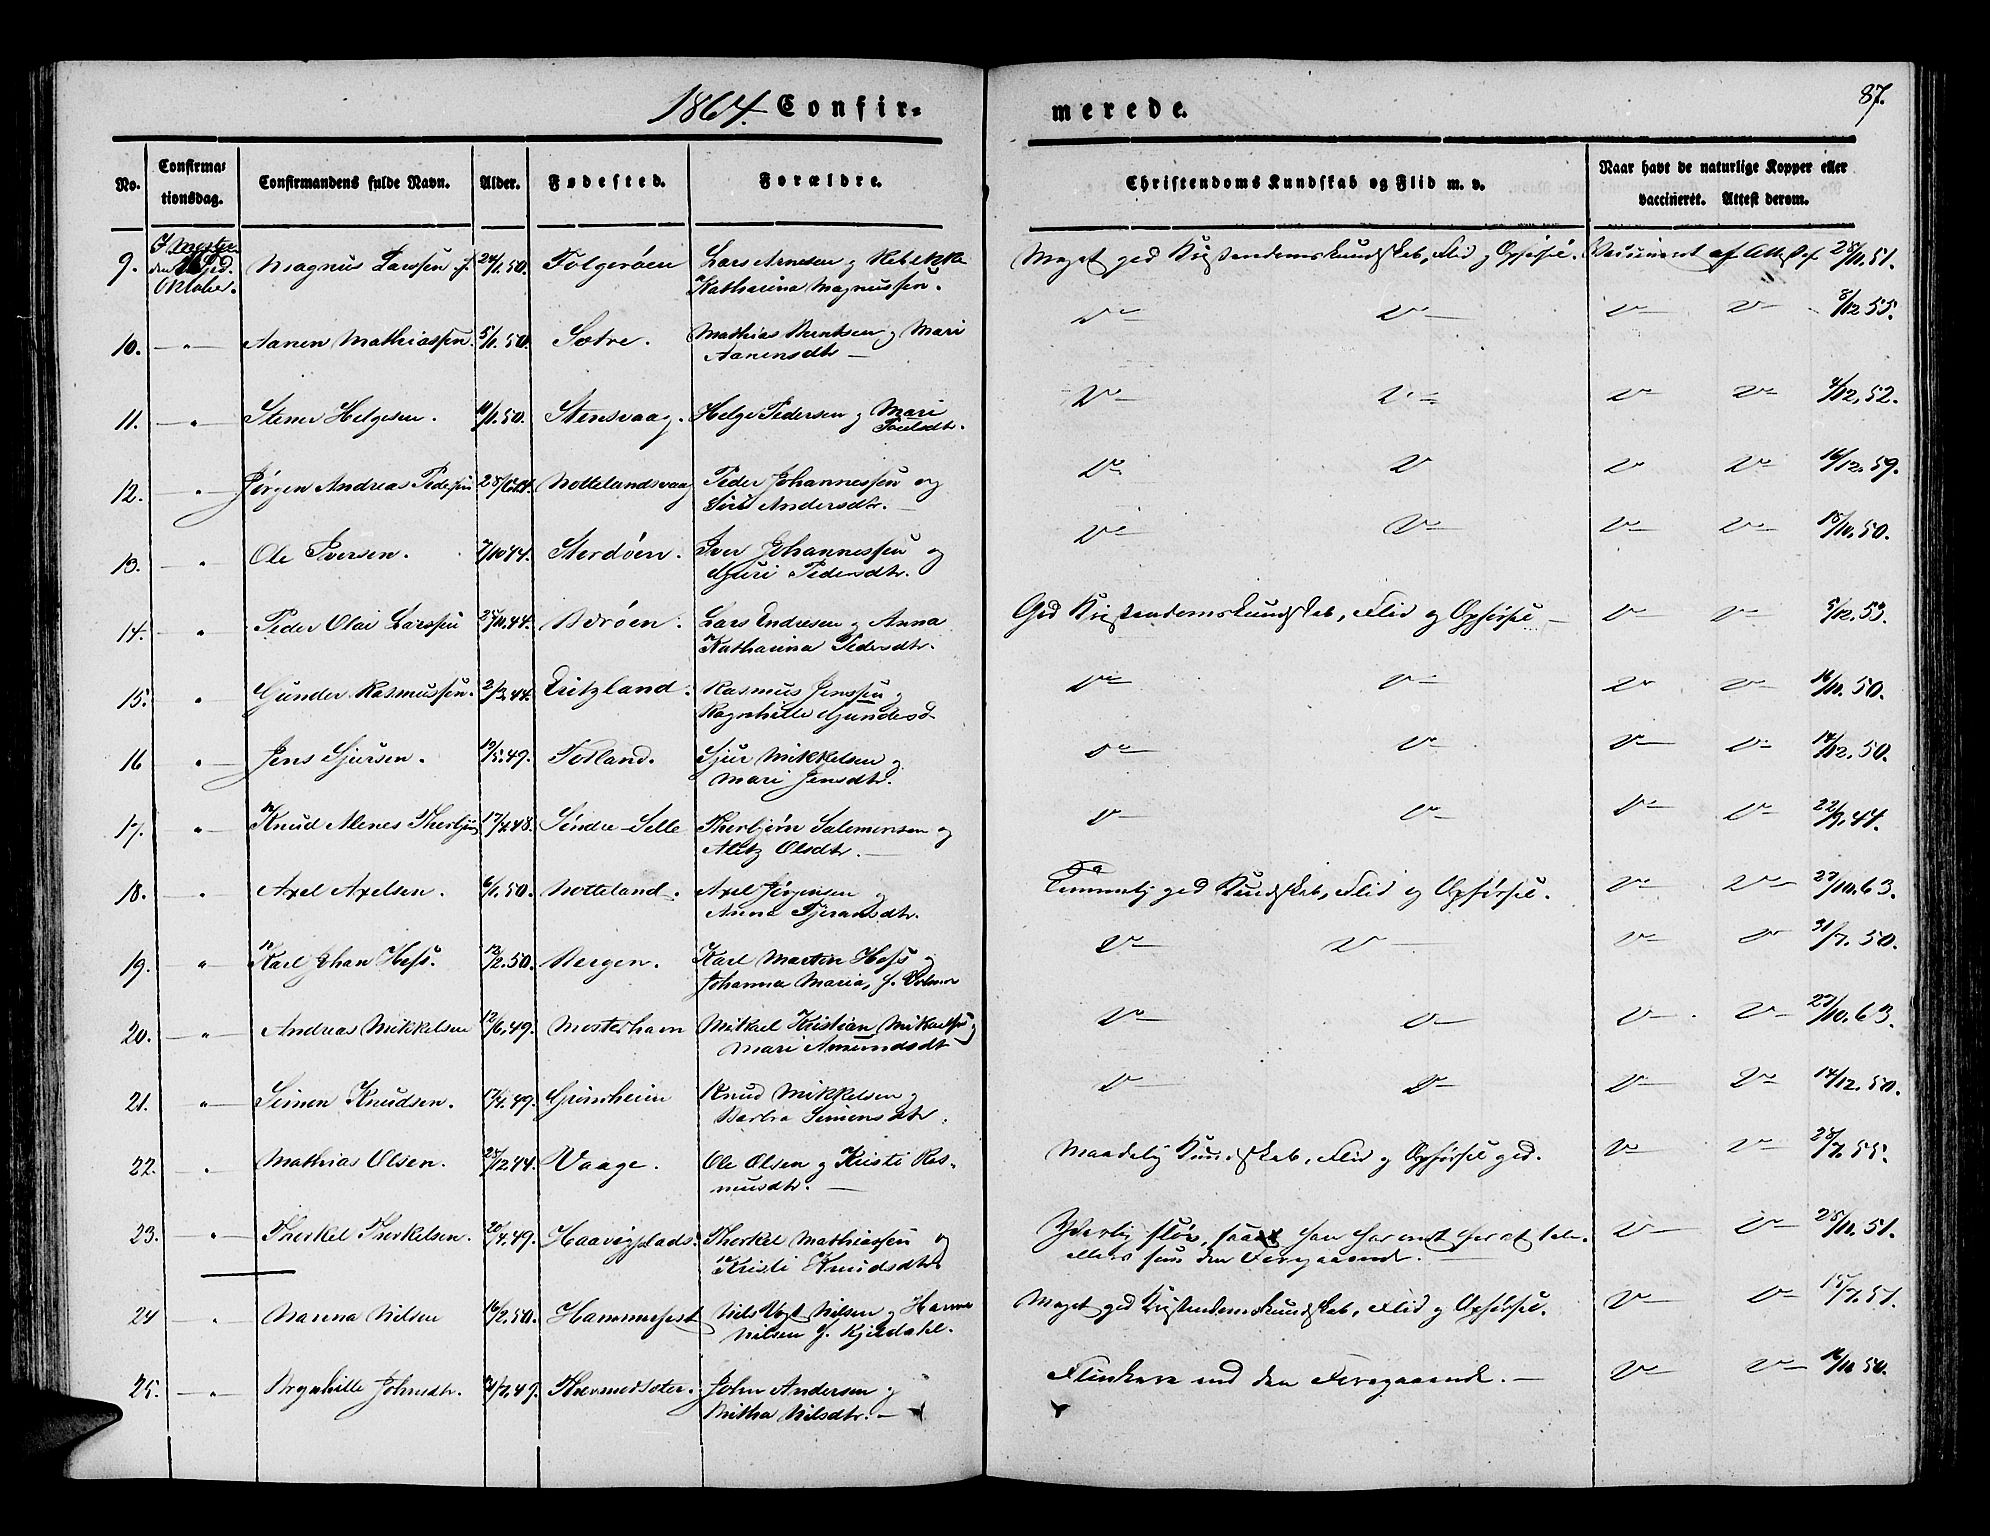 1864. Confir-
merede.
87.
No.
Confirma-
tionsdag.
Confirmandens fulde Navn.
Alder.
Fødested.
Forældre.
Christendoms Kundskab og Flid m. v.
Naar havt de naturlige Kopper eller
vaccineret. Attest derom.
I Moster
den
Oktober.
9. Magnus Larssen 24/1.50. Folgerøen Lars Arnesen og Rebekka
Katharina Magnussen. Meget god Kristendomskundskab, Flid og Opførsel. Vaccineret af Attest af 28/11.51.
10. — " — Aanen Mathiassen 5/1.50. Sætre. Mathias Berntsen og Mari
Aanensdtr — 8/12 55.
11. — " — Stener Helgesen. 11/1.50. Stensvaag. Helge Pedersen og Mari
Poulsdtr. 9/12.52.
12. — " — Jørgen Andreas Pedersen Nottelandsvaag Peder Johannessen og
Siri Andersdtr. — 16/12.59.
13. — " — Ole Iversen. 7/10 44. Stordøen. Iver Johannessen og
Guri Pedersdtr. 18/10.50.
14. — " Peder Olai Larssen 25/10.44. Børøen. Lars Endresen og Anna
Katharina Pedersdtr. God Kristendomskundskab, Flid og Opførsel — 5/12.53.
15. — " Gunder Rasmussen. 2/2.44. Rasmus Jenssen og
Ragnhille Gundersd 16/10.50.
16 " — Jens Sjursen. 19/5.49. Totland. Sjur Mikkelsen og
Mari Jensdtr. 14/12.50.
17. " — Knud Thorbjørn 17/4.48. Søndre-Selle Thorbjørn Salomonsen og
Olsdtr. — 22/9.44.
18. " Axel Axelsen. 6/1.50. Notteland. Axel Jørgensen og
Anna Tjeransdtr. Temmelig god Kundskab, Flid og Opførsel. 27/10.63.
19. " Karl Johan Hess. 12/2.50. Bergen. Karl Morten Hess og
Johanna Maria, f. 31/7.50.
20. — " — Andreas Mikkelsen 12/6.49. Mosterhavn Mikael Kristian Mikaelsen og
Mari Amundsdtr 27/10.63.
21. " — Simon Knudsen. 17/4.49. Grimheim Knud Mikkelsen og
Barbra Simonsdtr. 14/12.50.
22. — " Mathias Olsen. 25/12.44. Vaage. Ole Olsen og Kristi Ras-
musdtr. — Maadelig Kundskab, Flid og Opførsel god. 28/7.55.
23. — " — Thorkel Thorkelsen. 20/4.49. Haavigplads. Thorkel Mathiassen og
Kristi Knudsdtr. Yderlig sløv, saa han har ondt for at tale
ellers som den Foregaaende. — 25/11.51.
24 " Nanna Nilsen 16/2.50. Hammerfest Nils Vogt Nilsen og Hanna
Nilsen f. Kjeldahl. Meget god Kristendomskundskab, Flid og Opførsel. 15/7.51.
25. — " — Brynhille Johnsdtr. 4/7.49. John Andersen og
Britha Nilsdtr. — Flinkere end den Foregaaende. — 16/10 50.